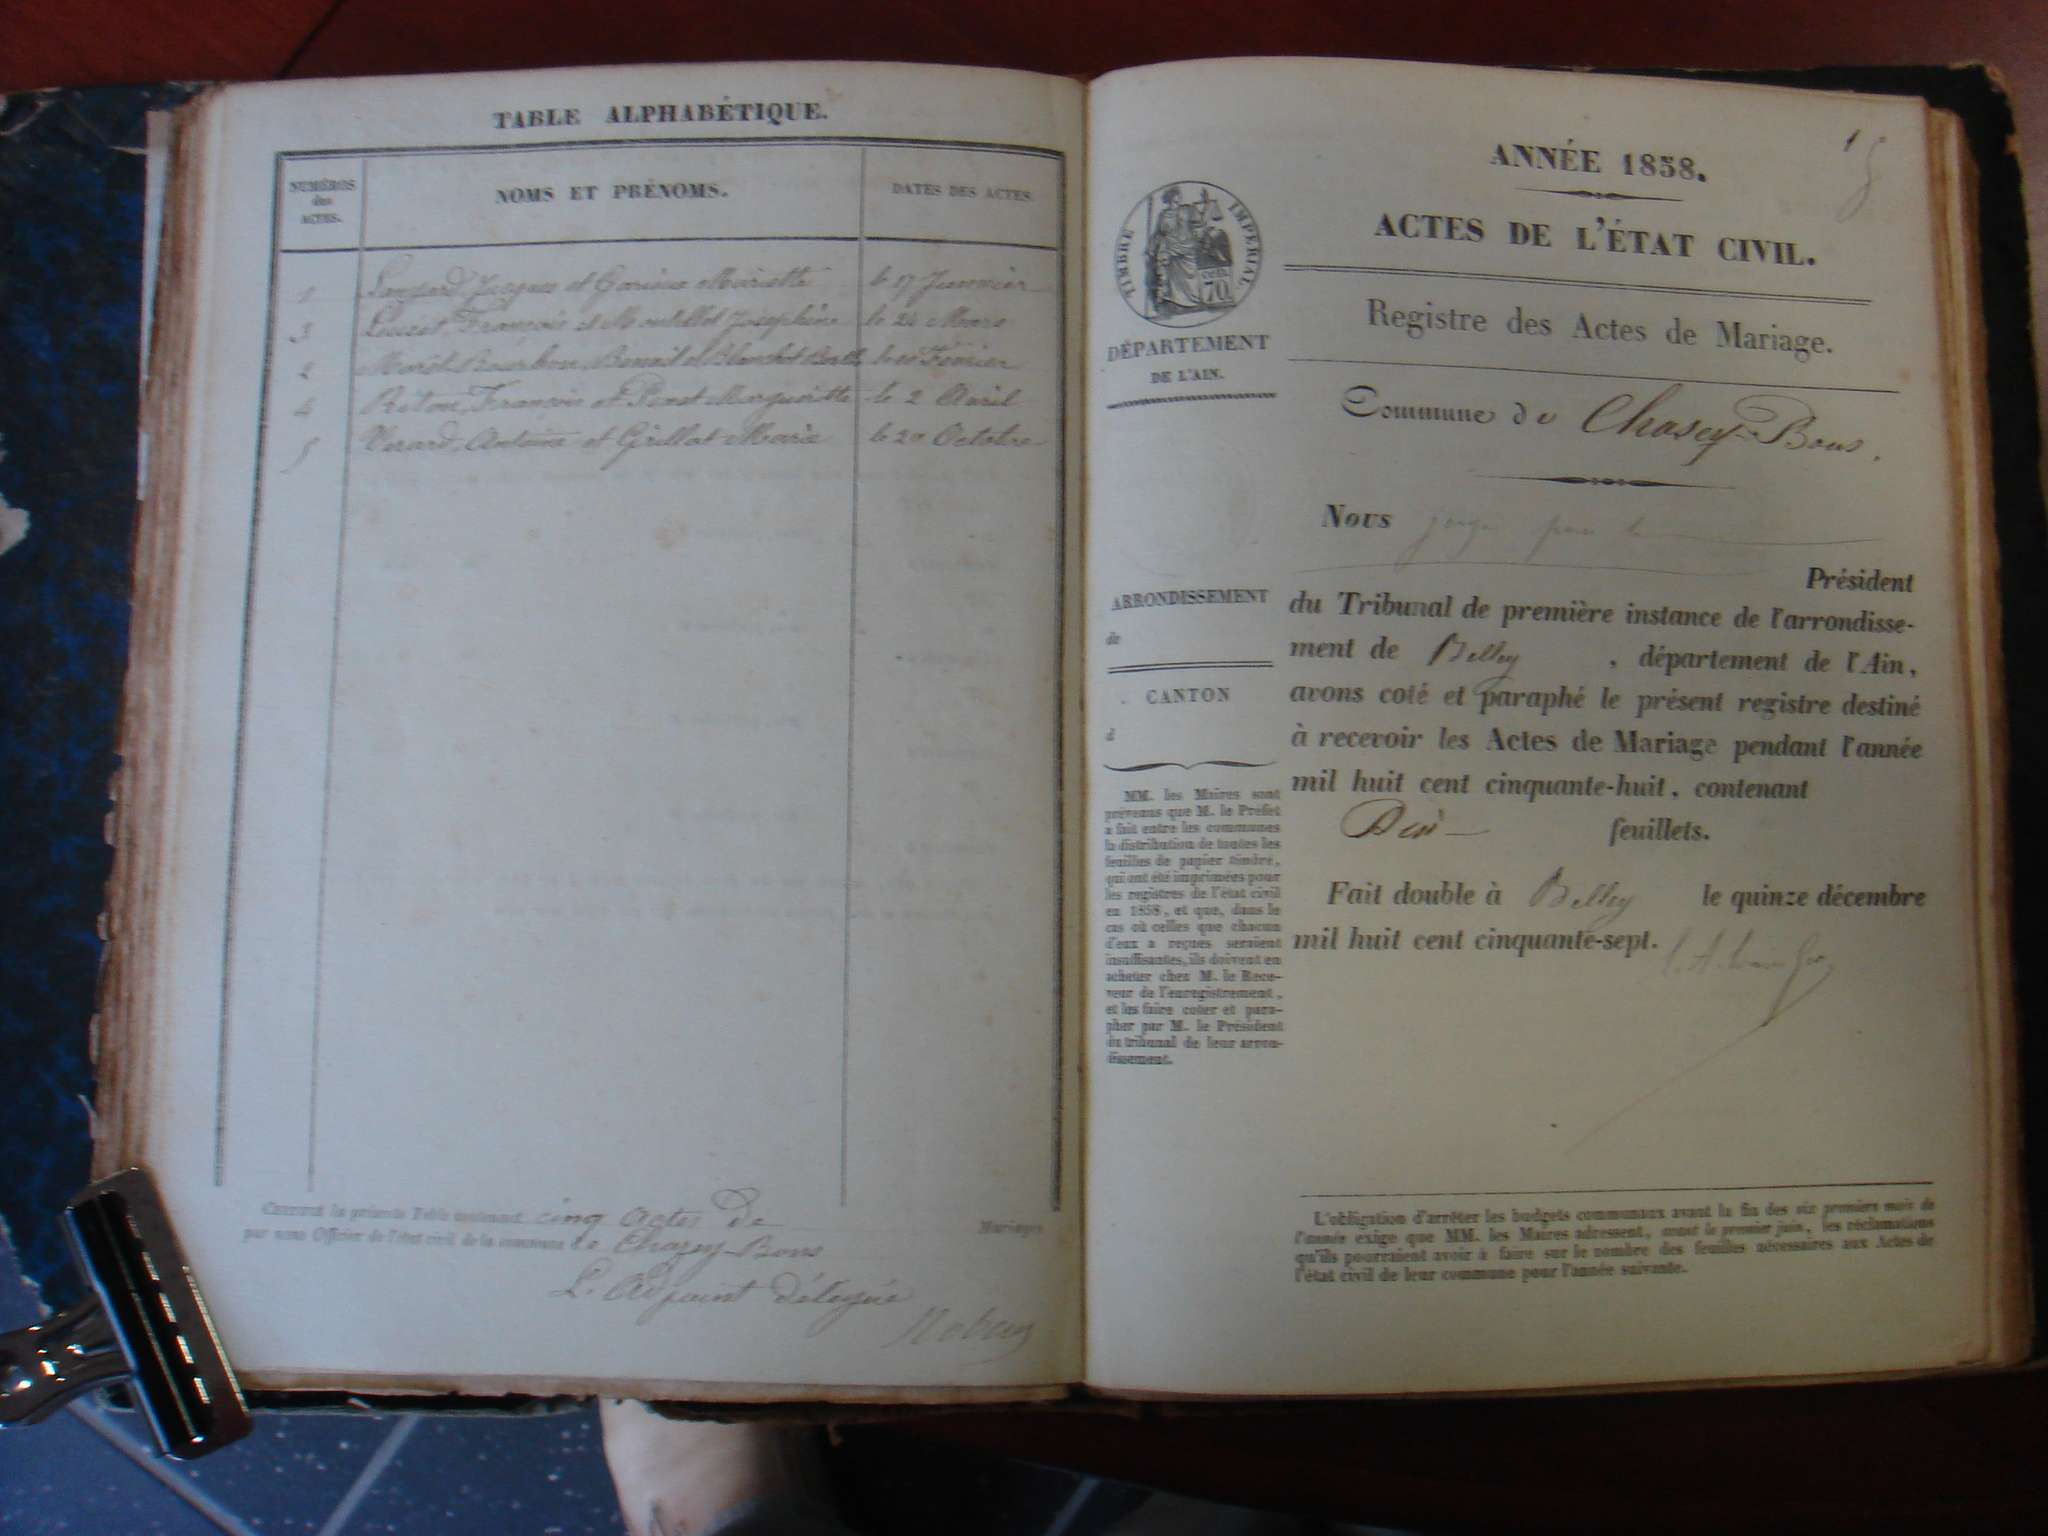 TABLE ALPHABÉTIQUE.
NUMÉROS des ACTES.
NOMS ET PRÉNOMS.
DATES DES ACTES.
1 Jacques et Mariette le 17 Janvier
3 François et Montillet Joséphine le 24 Mars
2 Benoit et Blanchet le 10 Février
4 François et Marguerite le 2 Avril
5 Antoine et Grillat Marie le 20 Octobre
CERTIFIÉ la présente Table contenant cinq Actes de Mariages
par nous Officier de l'état civil de la commune de Chazey-Bons
L'Adjoint délégué
1
ANNÉE 1858.
ACTES DE L'ÉTAT CIVIL.
TIMBRE IMPÉRIAL
70
Registre des Actes de Mariage.
DÉPARTEMENT
DE L'AIN.
Commune de Chasey-Bons.
Nous
Président
ARRONDISSEMENT
de
CANTON
d
du Tribunal de première instance de l'arrondisse-
ment de Belley , département de l'Ain,
avons coté et paraphé le présent registre destiné
à recevoir les Actes de Mariage pendant l'année
mil huit cent cinquante-huit, contenant
feuillets.
Fait double à Belley le quinze décembre
mil huit cent cinquante-sept.
MM. les Maires sont
prévenus que M. le Préfet
a fait entre les communes
la distribution de toutes les
feuilles de papier timbré,
qui ont été imprimées pour
les registres de l'état civil
en 1858, et que, dans le
cas où celles que chacun
d'eux a reçues seraient
insuffisantes, ils doivent en
acheter chez M. le Rece-
veur de l'enregistrement,
et les faire coter et para-
pher par M. le Président
du tribunal de leur arron-
dissement.
L'obligation d'arrêter les budgets communaux avant la fin des six premiers mois de
l'année exige que MM. les Maires adressent, avant le premier juin, les réclamations
qu'ils pourraient avoir à faire sur le nombre des feuilles nécessaires aux Actes de
l'état civil de leur commune pour l'année suivante.